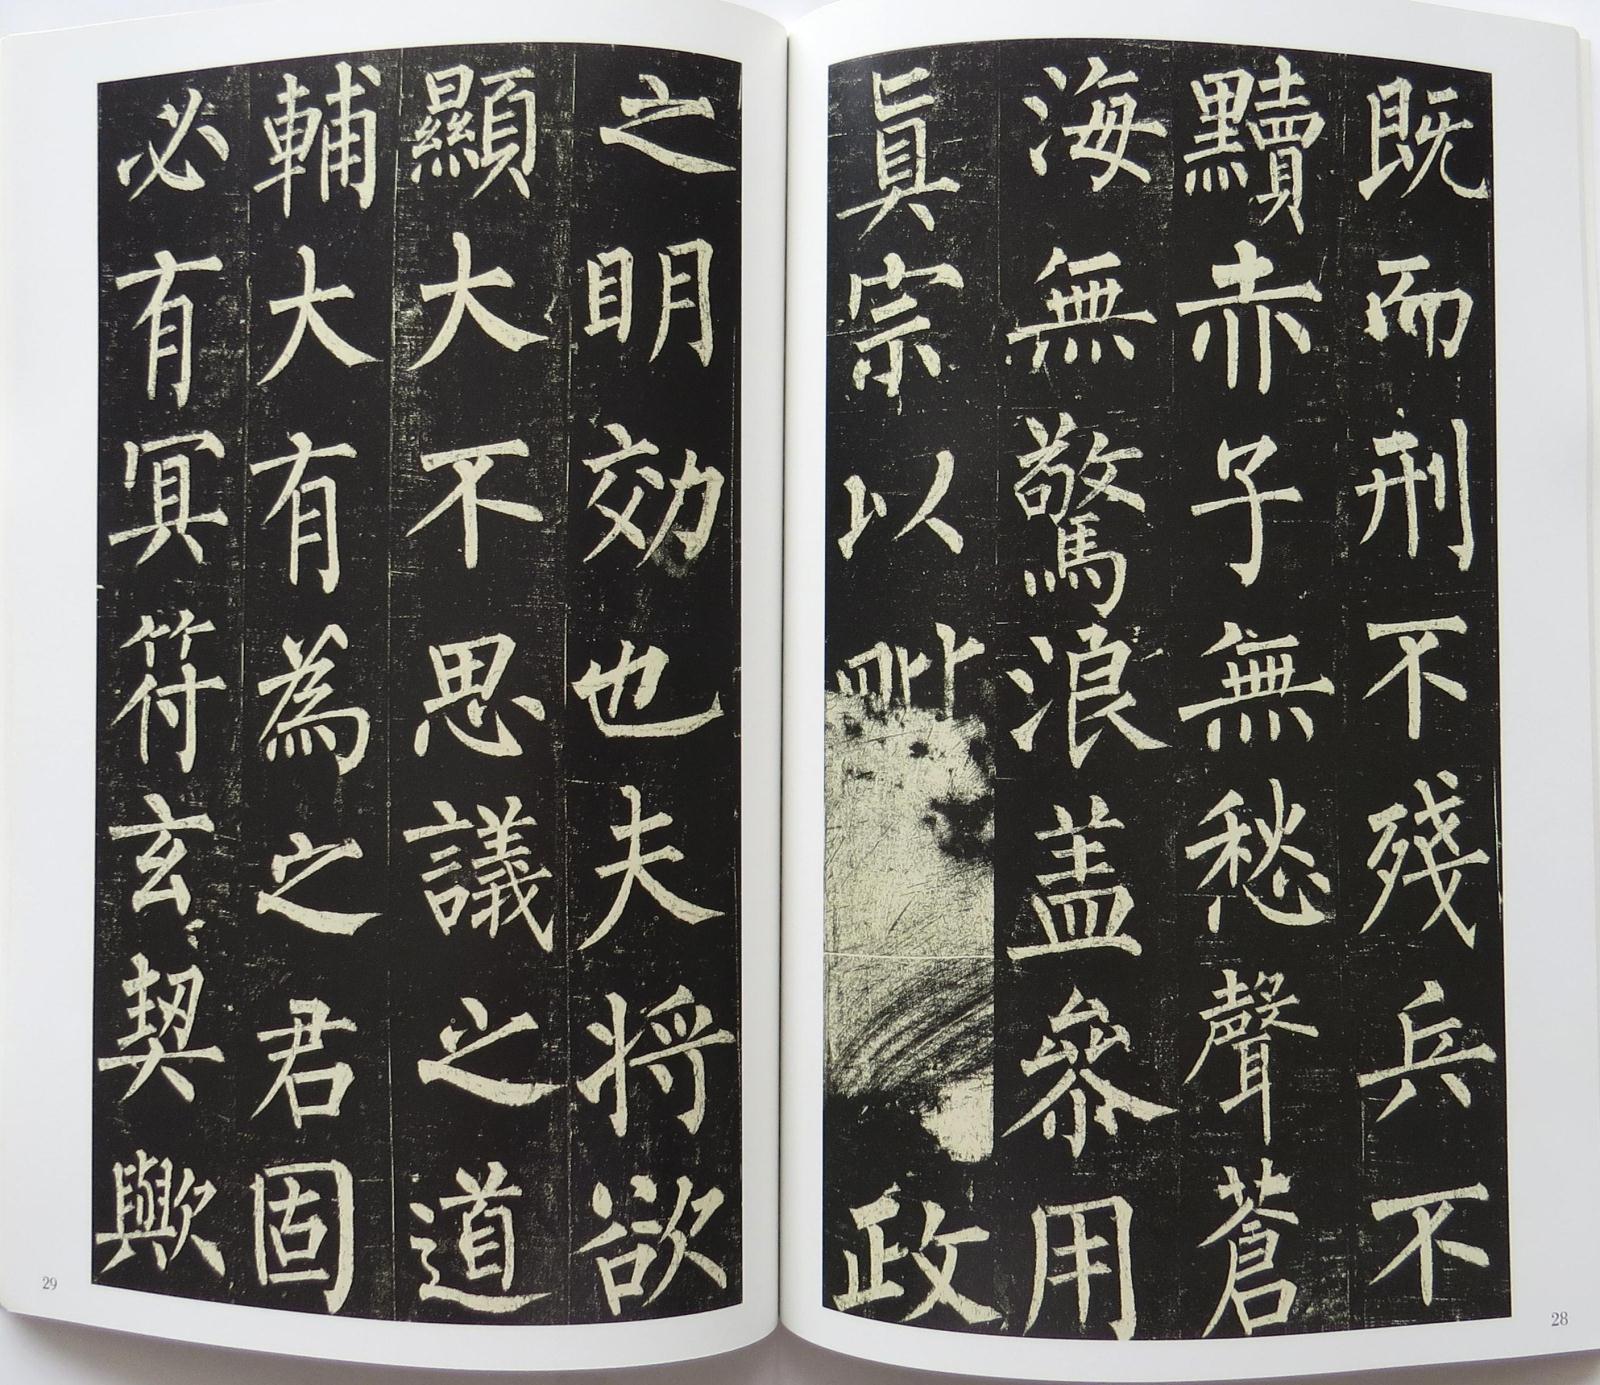 既而刑不殘兵不
黷赤子無愁聲蒼
海無驚浪盖叅用
真宗以毗政
之明効也夫將欲
顯大不思議之道
輔大有為之君固
必有冥符玄契歟
28
29